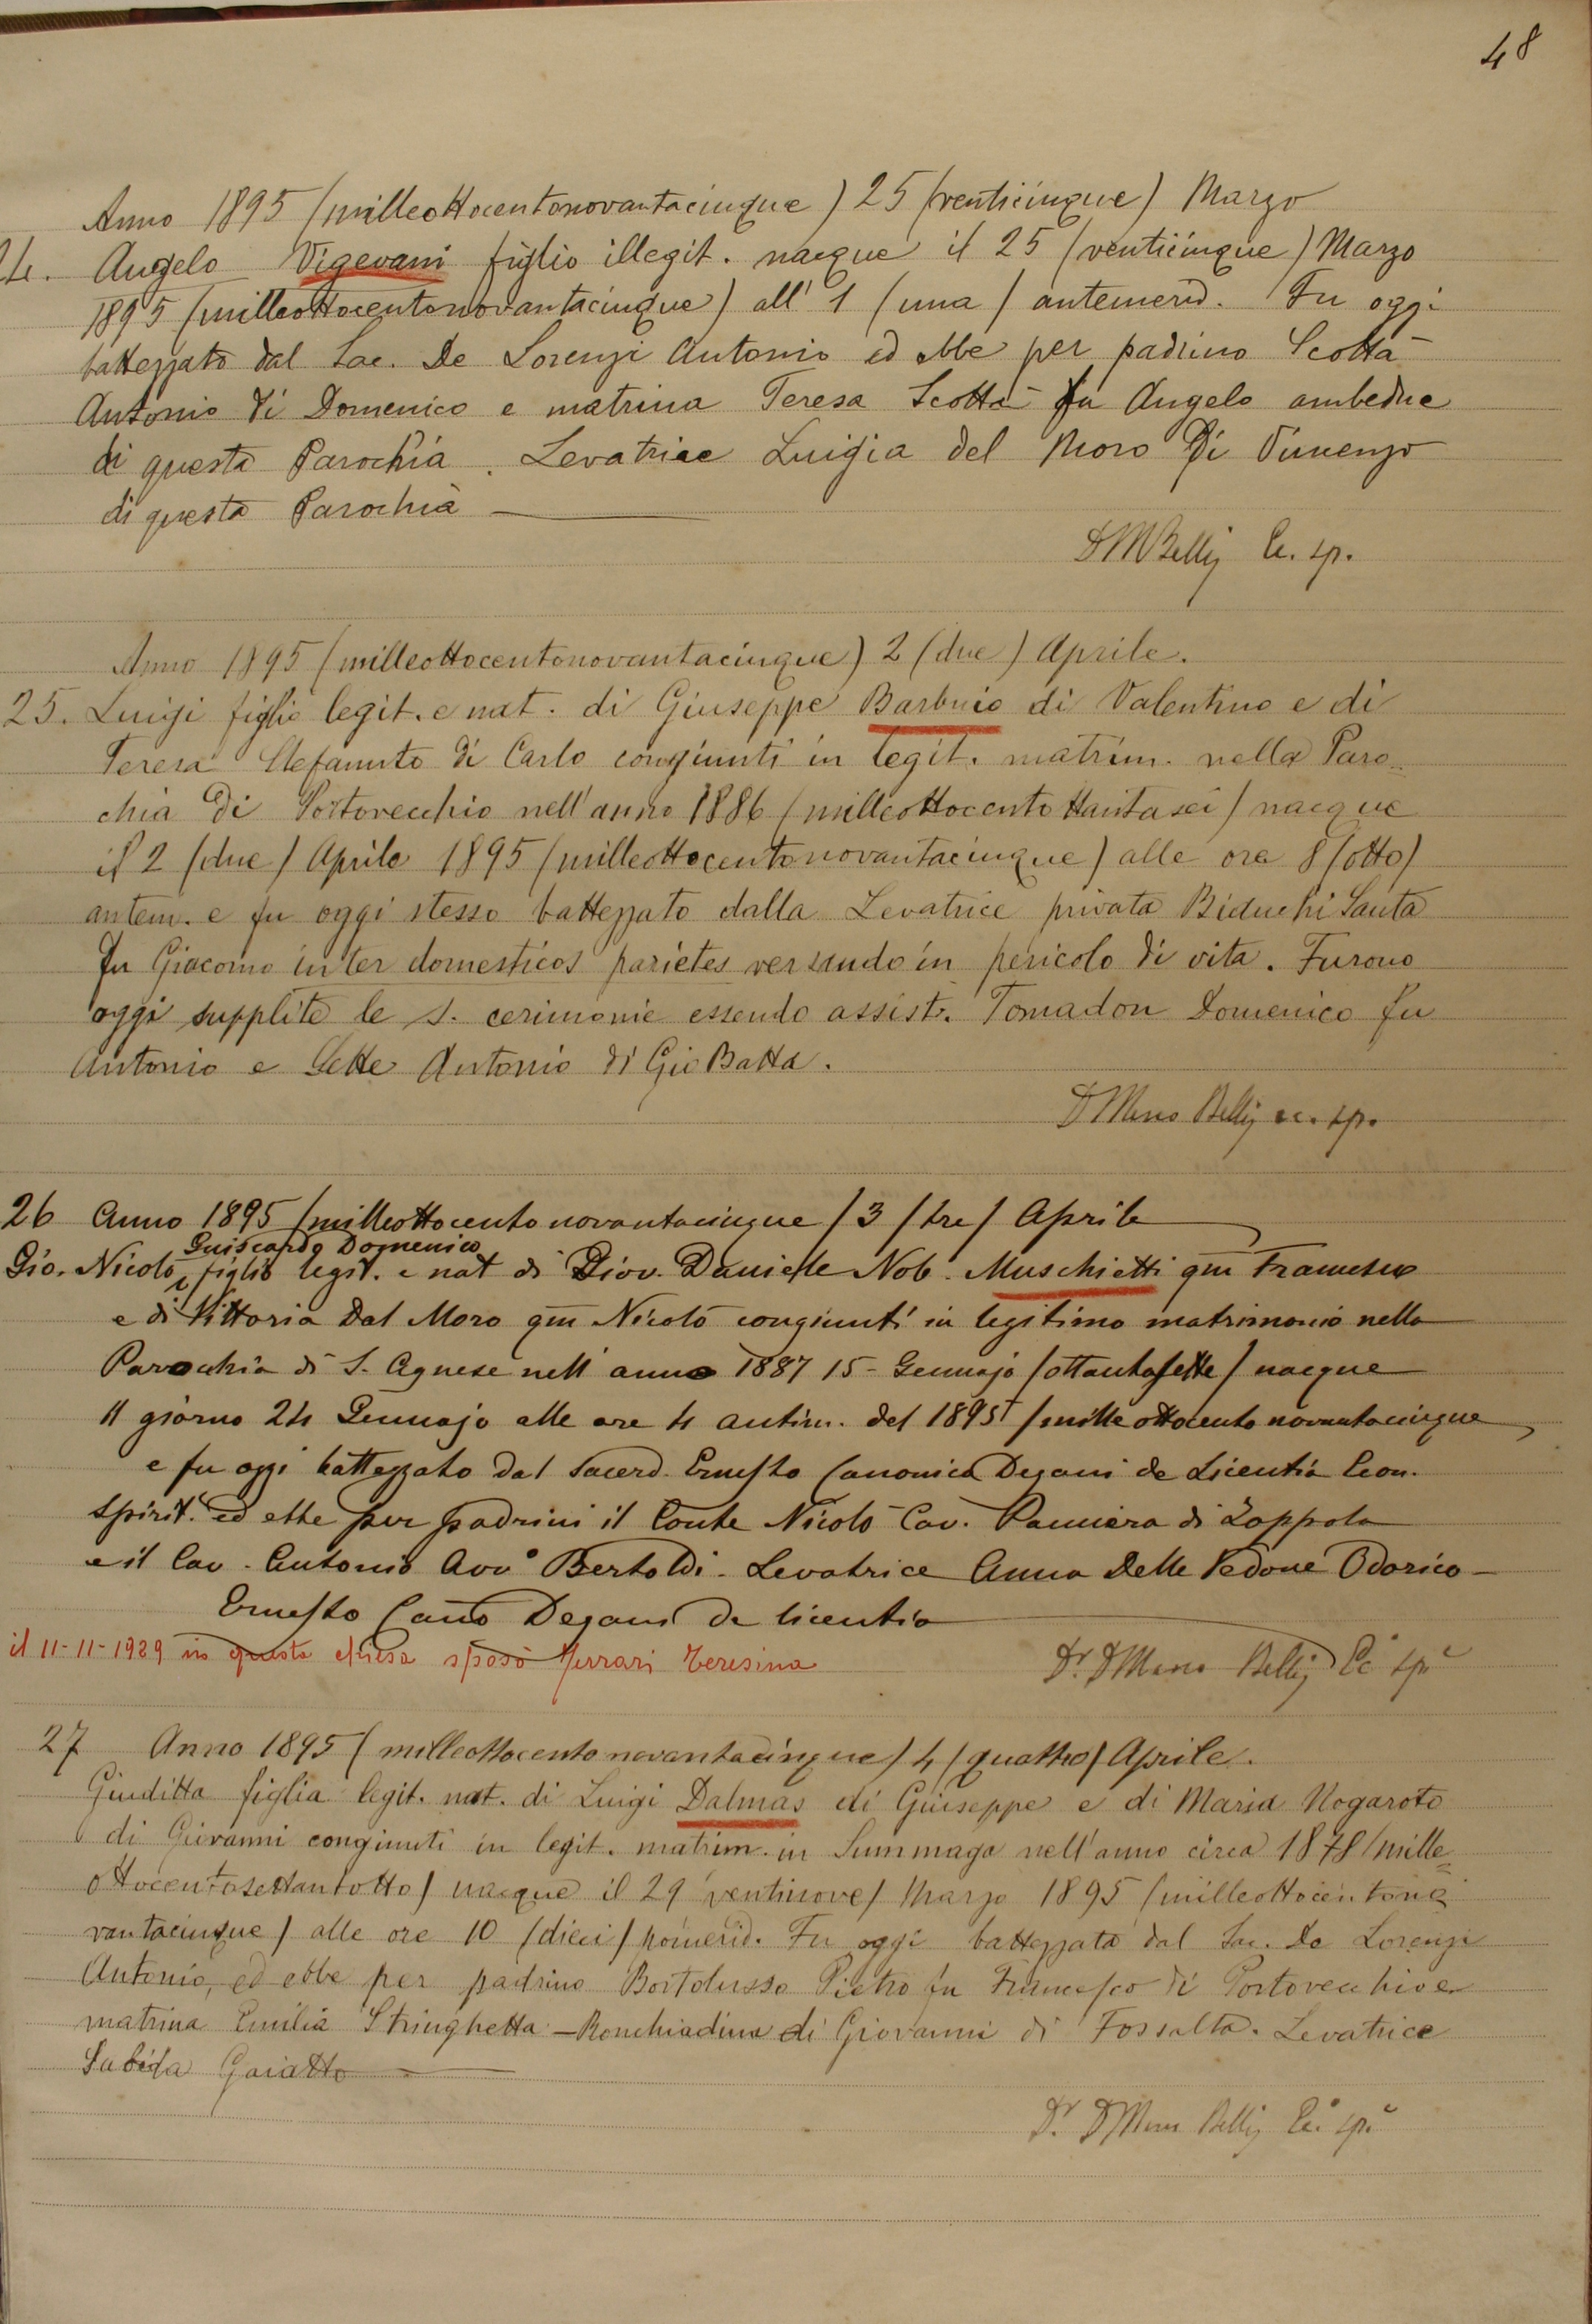 48
Anno 1895 (milleottocentonovantacinque) 25 (venticinque) Marzo
24. Angelo Vigevani figlio illegit. nacque il 25 (venticinque) Marzo
1895 (milleottocentonovantacinque) all' 1 (una) antemerid. Fu oggi
battezzato dal Sac. De Lorenzi Antonio ed ebbe per padrino Scottà
Antonio di Domenico e matrina Teresa Scottà fu Angelo ambedue
di questa Parochia. Levatrice Luigia del Moro di Vincenzo
di questa Parochia
DM Bellij Ec. sp.
Anno 1895 (milleottocentonovantacinque) 2 (due) Aprile.
25. Luigi figlio legit. e nat. di Giuseppe Barbuio di Valentino e di
Teresa Stefanuto di Carlo congiunti in legit. matrim. nella Paro=
chia di Portovecchio nell'anno 1886 (milleottocentottantasei) nacque
il 2 (due) Aprile 1895 (milleottocentonovantacinque) alle ore 8 (otto)
antem. e fu oggi stesso battezzato dalla Levatrice privata Biduchi Santa
fu Giacomo inter domesticos parietes versando in pericolo di vita. Furono
oggi supplite le s. cerimonie essendo assist. Tomadon Domenico fu
Antonio e Sette Antonio di Gio Batta.
D Marco Bellij ec. sp.
26 Anno 1895 (milleottocento novantacinque) 3 (tre) Aprile
Guiscardo Domenico
Gio. Nicolò figlio legit. e nat di Giov. Daniele Nob. Muschietti qm Francesco
e di Vittoria Dal Moro qm Nicolò congiunti in legitimo matrimonio nella
Parocchia di S. Agnese nell' anno 1887 15 - Gennajo (ottantasette) nacque
il giorno 24 Gennajo alle ore 4 antim. del 1895 (mille ottocento novantacinque
e fu oggi battezzato dal Sacerd. Ernesto Canonico Degani de Licentia Econ.
Spirit. ed ebbe per padrini il Conte Nicolò Cav. Panciera di Zoppola
e il Cav. Antonio Avvo Bertoldi. Levatrice Anna Delle Vedove Odorico -
Ernesto Cano Degani de licentia
il 11-11-1929 in questa chiesa sposò Ferrari Teresina
Dr. D Marco Bellij Ec sp
27 Anno 1895 (milleottocentonovantacinque) 4 (quattro) Aprile.
Giuditta figlia legit. nat. di Luigi Dalmas di Giuseppe e di Maria Nogaroto
di Giovanni congiunti in legit. matrim. in Summaga nell'anno circa 1878 (mille=
ottocentosettantotto) nacque il 29 (ventinove) Marzo 1895 (milleottocentono=
vantacinque) alle ore 10 (dieci) pomerid. Fu oggi battezzata dal Sac. De Lorenzi
Antonio, ed ebbe per padrino Bortolusso Pietro fu Francesco di Portovecchio e
matrina Emilia Stringhetta - Ronchiadina di Giovanni di Fossalta. Levatrice
Sabida Gaiatto
Dr. D Marco Bellij Ec. sp.